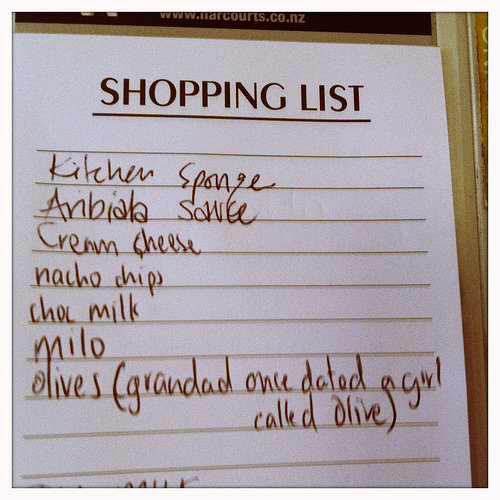 www.harcourts.co.nz
SHOPPING LIST
Kitchen sponge
Aribiata Sauce
Cream cheese
nacho chips
choc milk
milo
olives (grandad once dated a girl
called Olive)